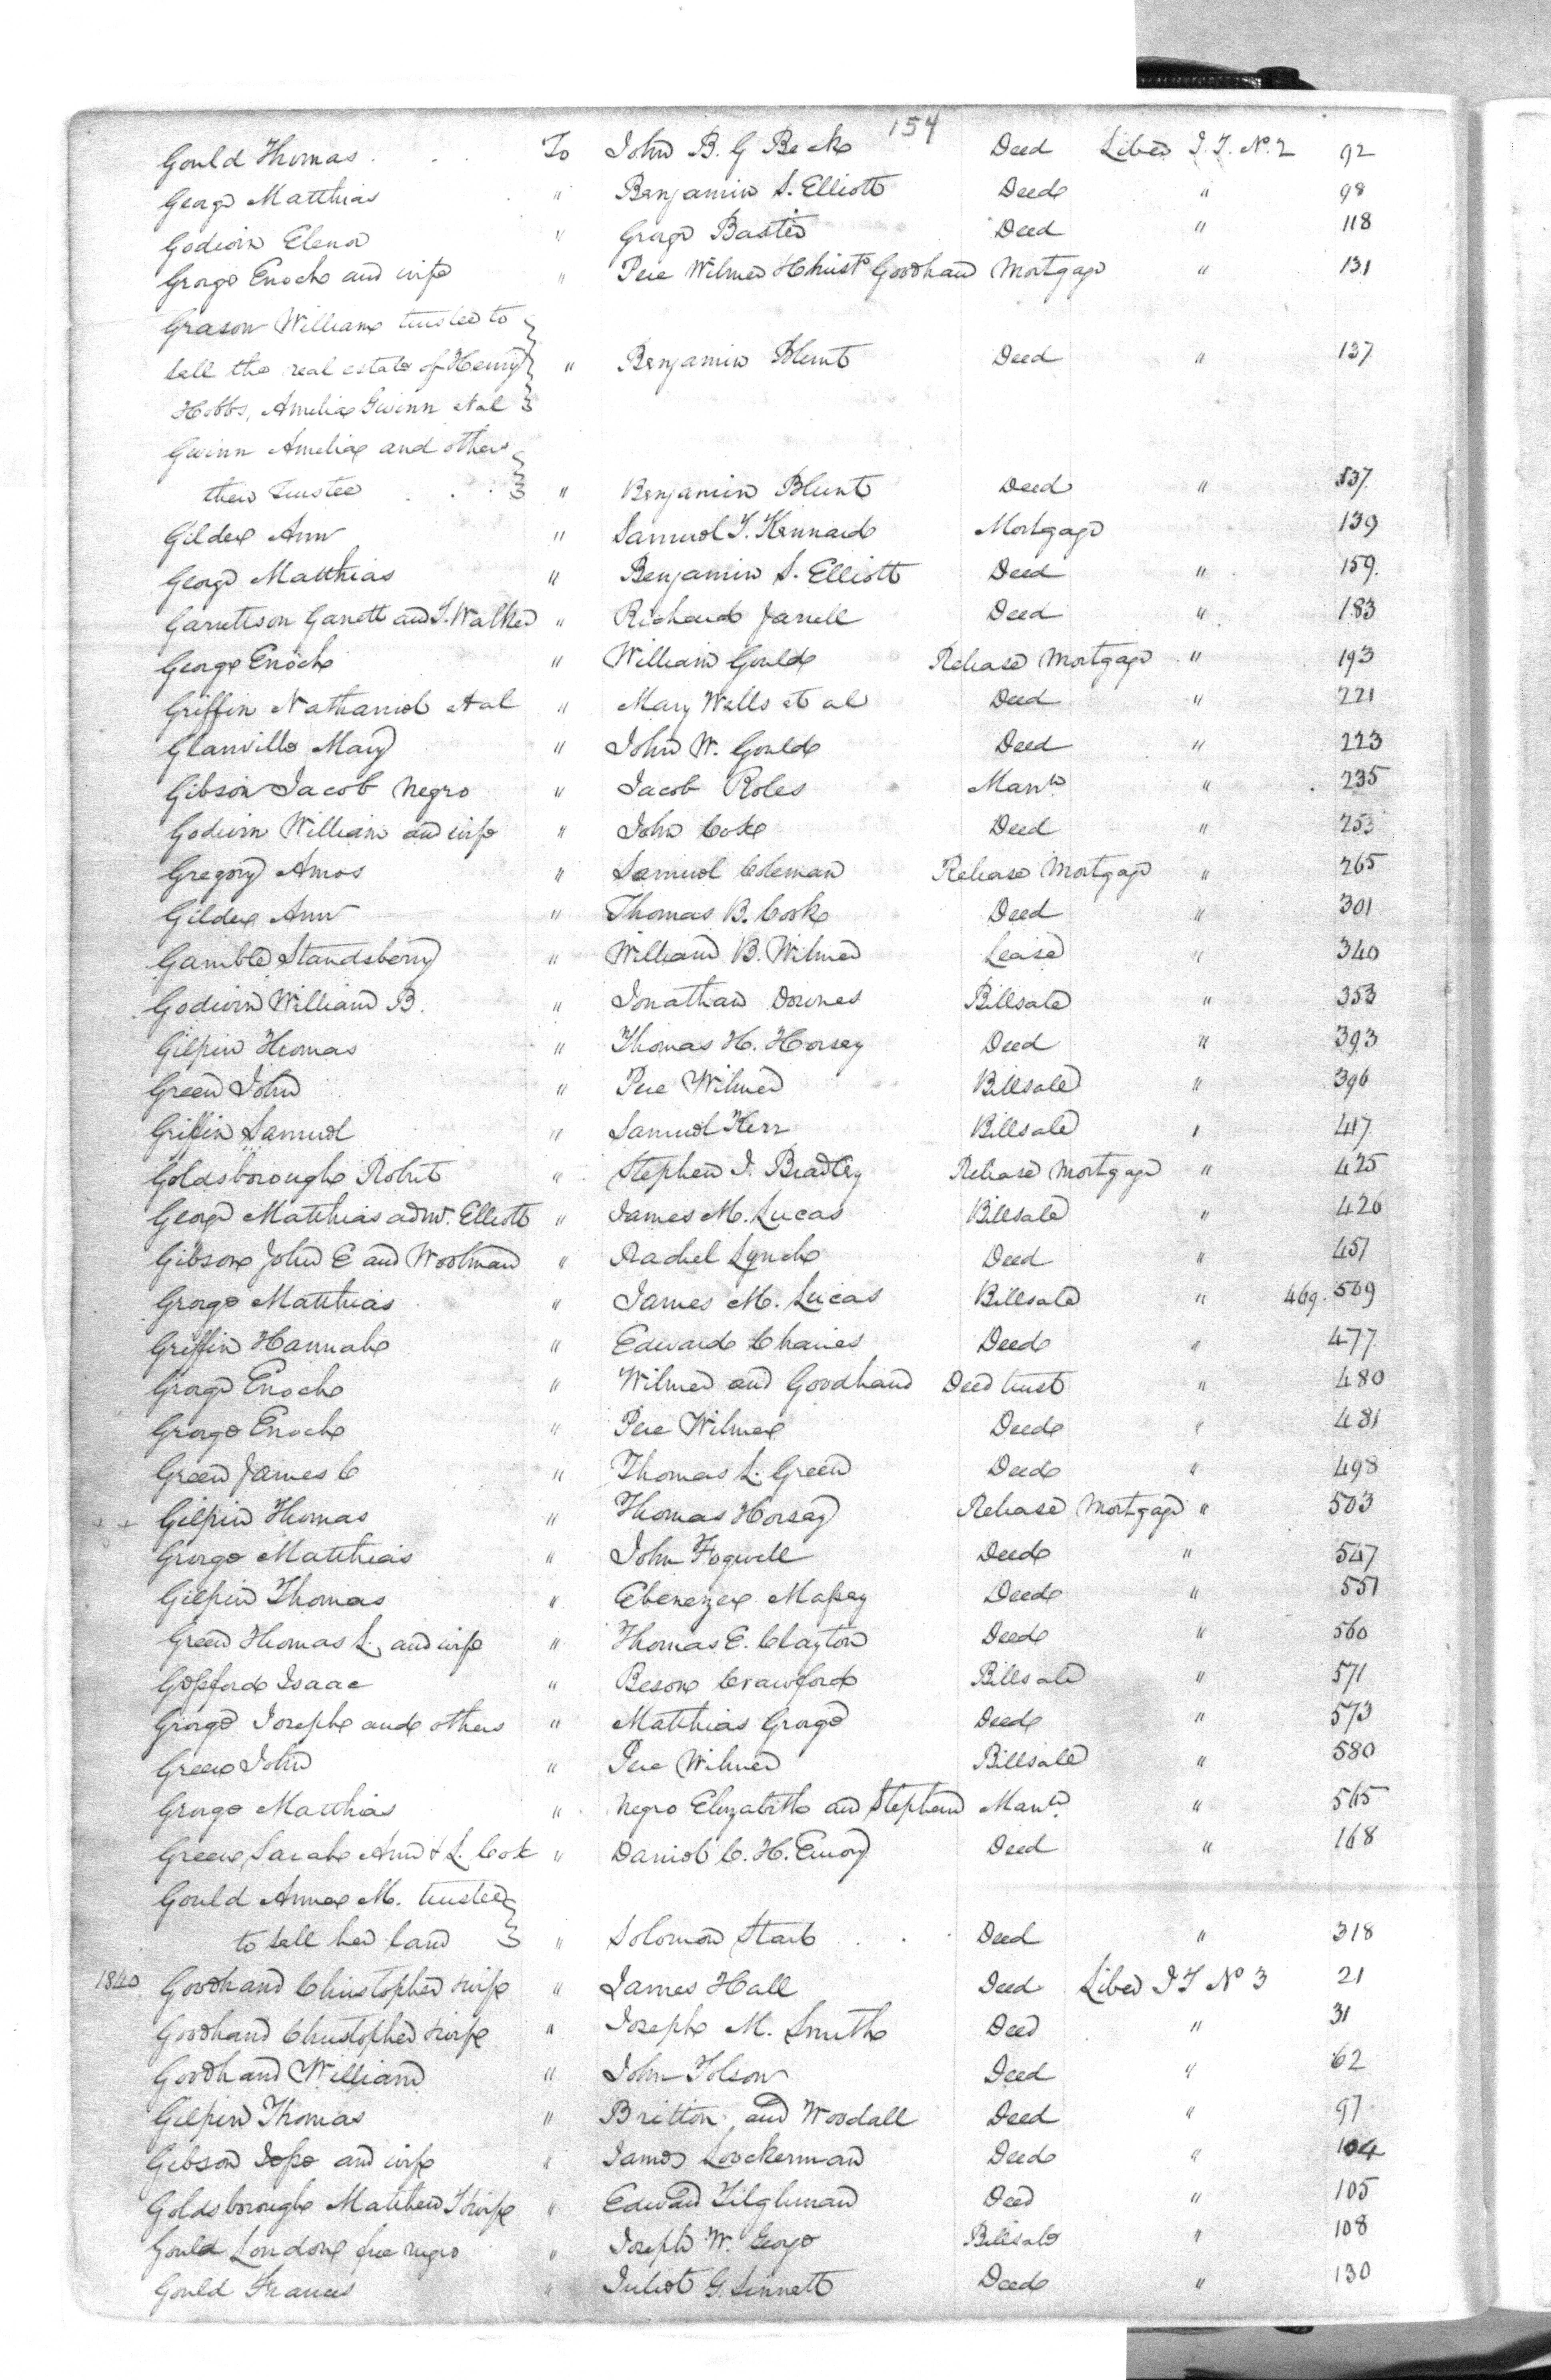 154
Gould Thomas . . To John B. G Beck Deed Liber J. T. No. 2 92
George Matthias " Benjamin S. Elliott Deed " 98
Godwin Elenor " George Baxter Deed " 118
George Enoch and wife " Pere Wilmer & Christr Goodhand Mortgage " 131
Grason William trustee to
sell the real estate of Henry " Benjamin Blunt Deed " 137
Hobbs, Amelia Gwinn et al
Gwinn Amelia and others
their Trustee . . . " Benjamin Blunt Deed " 137
Gilder Ann " Samuel T. Kennard Mortgage 139
George Matthias " Benjamin S. Elliott Deed " 159.
Garrettson Garrett and T. Walker " Richard Jarrell Deed " 183
George Enoch " William Gould Release Mortgage " 193
Griffin Nathaniel et al " Mary Wells et al Deed " 221
Glanville Mary " John W. Gould Deed " 223
Gibson Jacob Negro " Jacob Roles Mann " 235
Godwin William and wife " John Cook Deed " 253
Gregory Amos " Samuel Coleman Release Mortgage " 265
Gilder Ann " Thomas B. Cook Deed " 301
Gamble Standsberry " William B. Wilmer Lease " 340
Godwin William B. " Jonathan Downes Billsale " 353
Gilpin Thomas " Thomas H. Horsey Deed " 393
Green John " Pere Wilmer Billsale " 396
Griffin Samuel " Samuel Kerr Billsale " 417
Goldsborough Robert " Stephen J. Bradley Release Mortgage " 425
George Matthias admr. Elliott " James M. Lucas Billsale " 426
Gibson John E and Woolman " Rachel Lynch Deed " 457
George Matthias " James M. Lucas Billsale " 469. 509
Griffin Hannah " Edward Chaires Deed " 477
George Enoch " Wilmer and Goodhand Deed trust " 480
George Enoch " Pere Wilmer Deed " 481
Green James C " Thomas L. Green Deed " 498
Gilpin Thomas " Thomas Horsey Release Mortgage " 503
George Matthias " John Fogwell Deed " 547
Gilpin Thomas " Ebenezer Massey Deed " 551
Green Thomas L. and wife " Thomas E. Clayton Deed " 560
Gosford Isaac " Beson Crawford Billsale " 571
George Joseph and others " Matthias George Deed " 573
Green John " Pere Wilmer Billsale " 580
George Matthias " Negro Elizabeth and Stephen Mann " 565
Green Sarah Ann & L. Cook " Daniel C. H. Emory Deed " 168
Gould Anna M. trustee
to sell her land " Solomon Start . . . Deed " 318
1840 Goodhand Christopher & wife " James Hall Deed Liber J T No 3 21
Goodhand Christopher & wife " Joseph M. Smith Deed " 31
Goodhand William " John Tolson Deed " 62
Gilpin Thomas " Britton and Woodall Deed " 97
Gibson Jesse and wife " James Loockerman Deed " 104
Goldsborough Matthew T & wife " Edward Tilghman Deed " 105
Gould London free negro " Joseph W. George Billsale " 108
Gould Frances " Juliet G. Sinnett Deed " 130